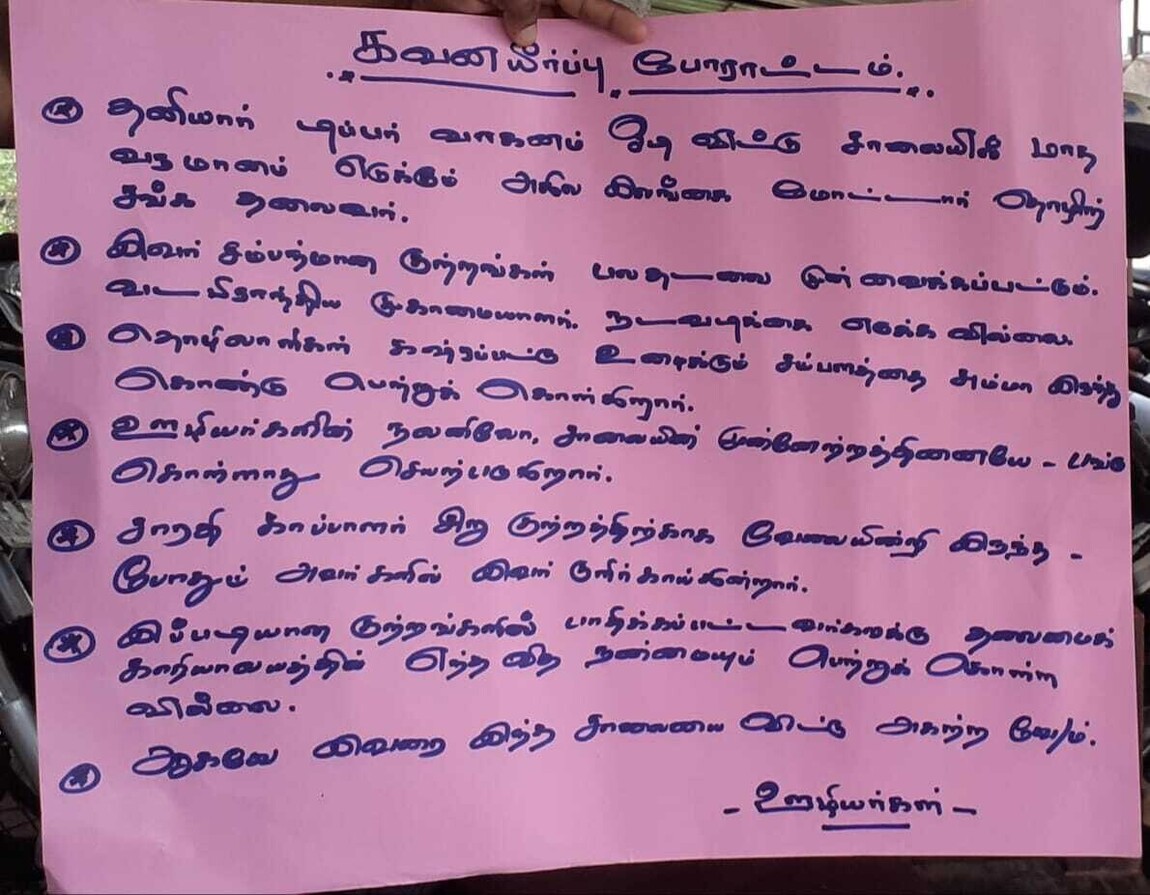 கவனயீர்ப்பு போராட்டம்.
தனியார் டிப்பர் வாகனம் ஓடி விட்டு சாலையில் மாத
வருமானம் எடுக்கும் அகில இலங்கை மோட்டார் தொழிற்
சங்க தலைவர்.
இவர் சம்பந்மான குற்றங்கள் பலதடவை முன் வைக்கப்பட்டும்.
வட பிராந்திய முகாமையாளர். நடவடிக்கை எடுக்க வில்லை.
தொழிலாளர்கள் கஷ்டப்பட்டு உழைக்கும் சம்பளத்தை சும்மா இருந்து
கொண்டு பெற்றுக் கொள்கிறார்.
ஊழியர்களின் நலனிலோ, சாலையின் முன்னேற்றத்தினையே - பங்கு
கொள்ளாது செயற்படுகிறார்.
சாரதி காப்பாளர் சிறு குற்றத்திற்காக வேலையின்றி இருந்த -
போதும் அவர்களில் இவர் குளிர் காய்கின்றார்.
இப்படியான குற்றங்களில் பாதிக்கப்பட்டவர்களுக்கு தலைமைக்
காரியாலயத்தில் எந்த வித நன்மையும் பெற்றுக் கொள்ள
வில்லை.
ஆகவே இவரை இந்த சாலையை விட்டு அகற்ற வே/ம்.
- ஊழியர்கள் -